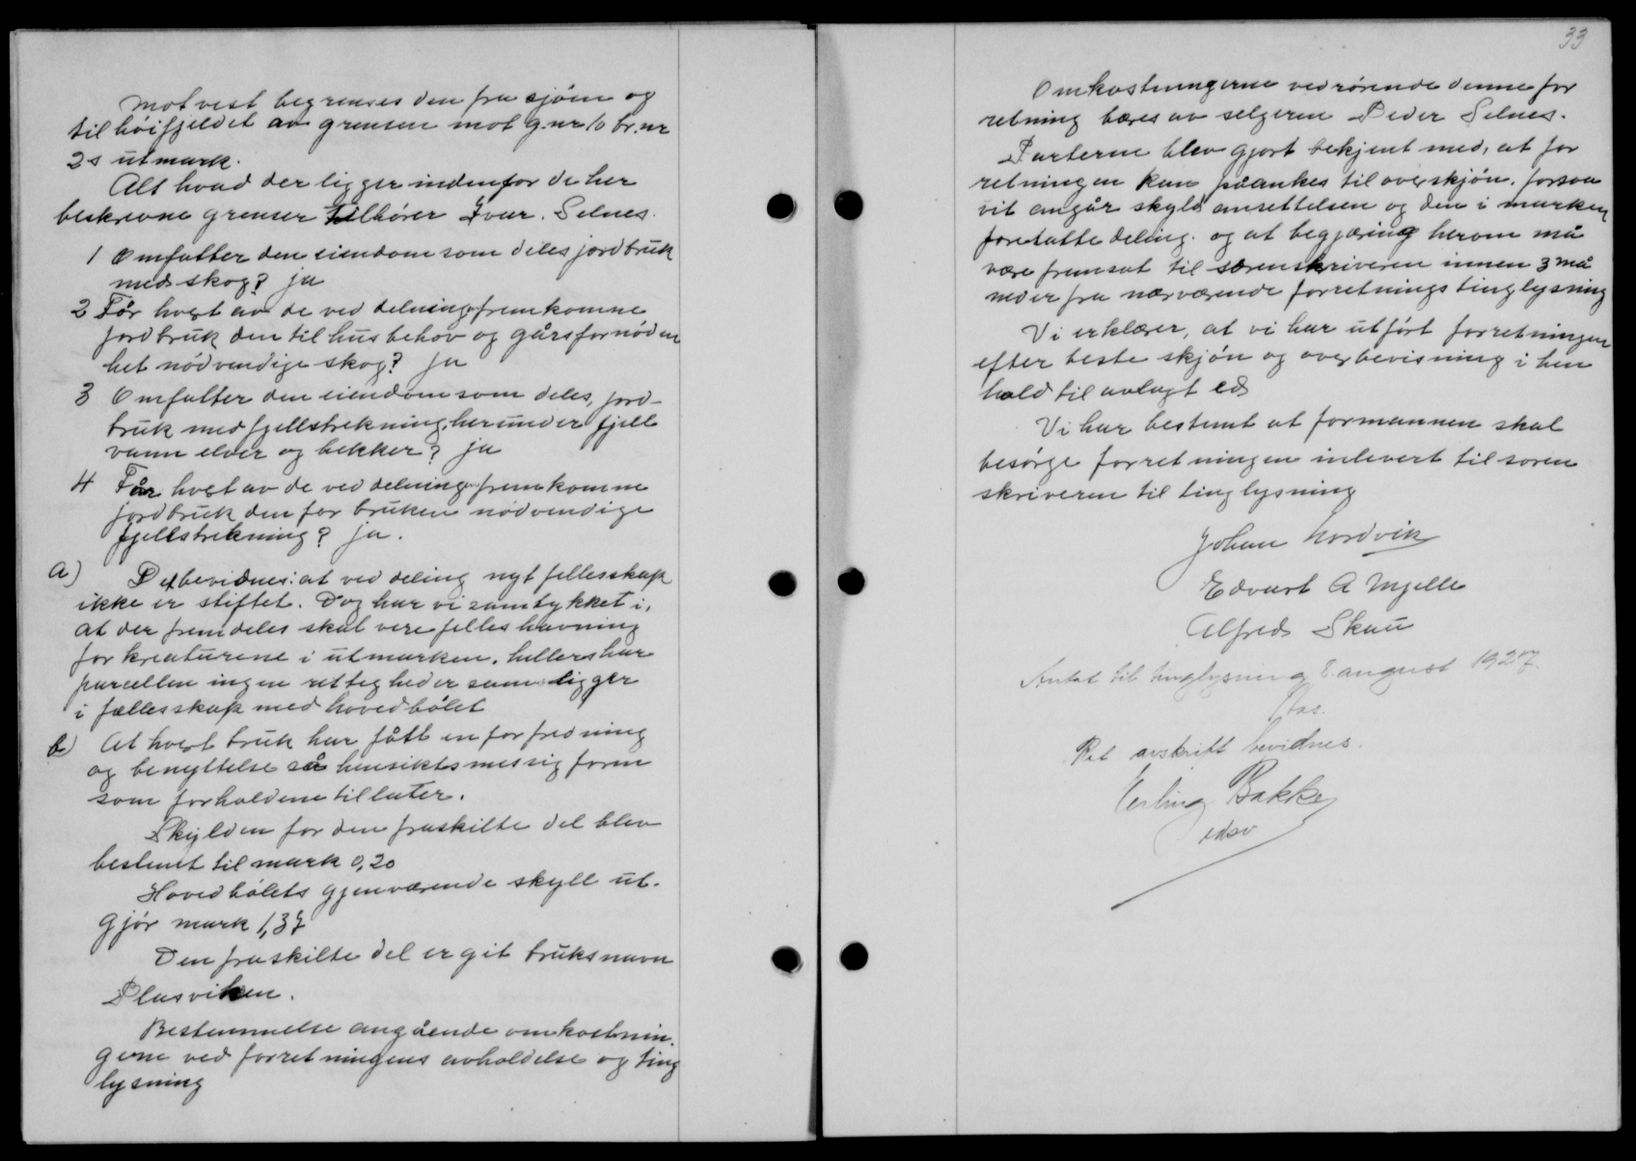 Mot vest begrenses den fra sjøen og
til høifjeldet av grensen mot g.nr 10 br.nr
2s utmark.
Alt hvad der ligger indenfor de her
beskrevne grenser tilhører Ivar. Selnes.
1 Omfatter den eiendom som deles jordbruk
med skog? ja
2 Får hvert av de ved delningen fremkomne
jordbruk den til husbehov og gårsfornøden
het nødvendige skog? ja
3 Omfatter den eiendom som deles, jord-
bruk med fjellstrekning, herunder fjell
vann elver og bekker? ja
4 Får hvert av de ved delningen fremkomne
jordbruk den for bruken nødvendige
fjellstrekning? ja.
a) Det bevidnes: at ved deling nyt fellesskap
ikke er stiftet. Dog har vi samtykket i,
at der fremdeles skal vere felles havning
for kreaturene i utmarken. hellers har
parcellen ingen rettigheder som ligger
i fællesskap med hovedbølet
b) At hvert bruk har fått en for fredning
og benyttelse så hensiktsmessig form
som forholdene tillater.
Skylden for den fraskilte del blev
bestemt til mark 0,20
Hovedbølets gjenværende skyll ut-
gjør mark 1,37
Den fraskilte del er git bruksnavn
Plasviken.
Bestemmelse angående omkostnin-
gerne ved forretningens avholdelse og ting
lysning
33
Omkostningerne vedrørende denne for
retning bæres av selgeren Peder Selnes.
Parterne blev gjort bekjent med, at for
retningen kan påankes til overskjøn. forsaa
vit angår skyldansettelsen og den i marken
foretatte deling. og at begjæring herom må
være fremsat til sorenskriveren innen 3 må
neder fra nærværende forretnings tinglysning
Vi erklærer, at vi har utført forretningen
efter beste skjøn og overbevisning i hen
hold til avlagt ed
Vi har bestemt at formannen skal
besørge forretningen inlevert til soren
skriveren til tinglysning
Johan Nordvik
Edvart A Mjelle
Alfred Skau
Antat til tinglysning 8. august 1927.
Ret avskrift bevidnes.
Erling Bakke
edsv